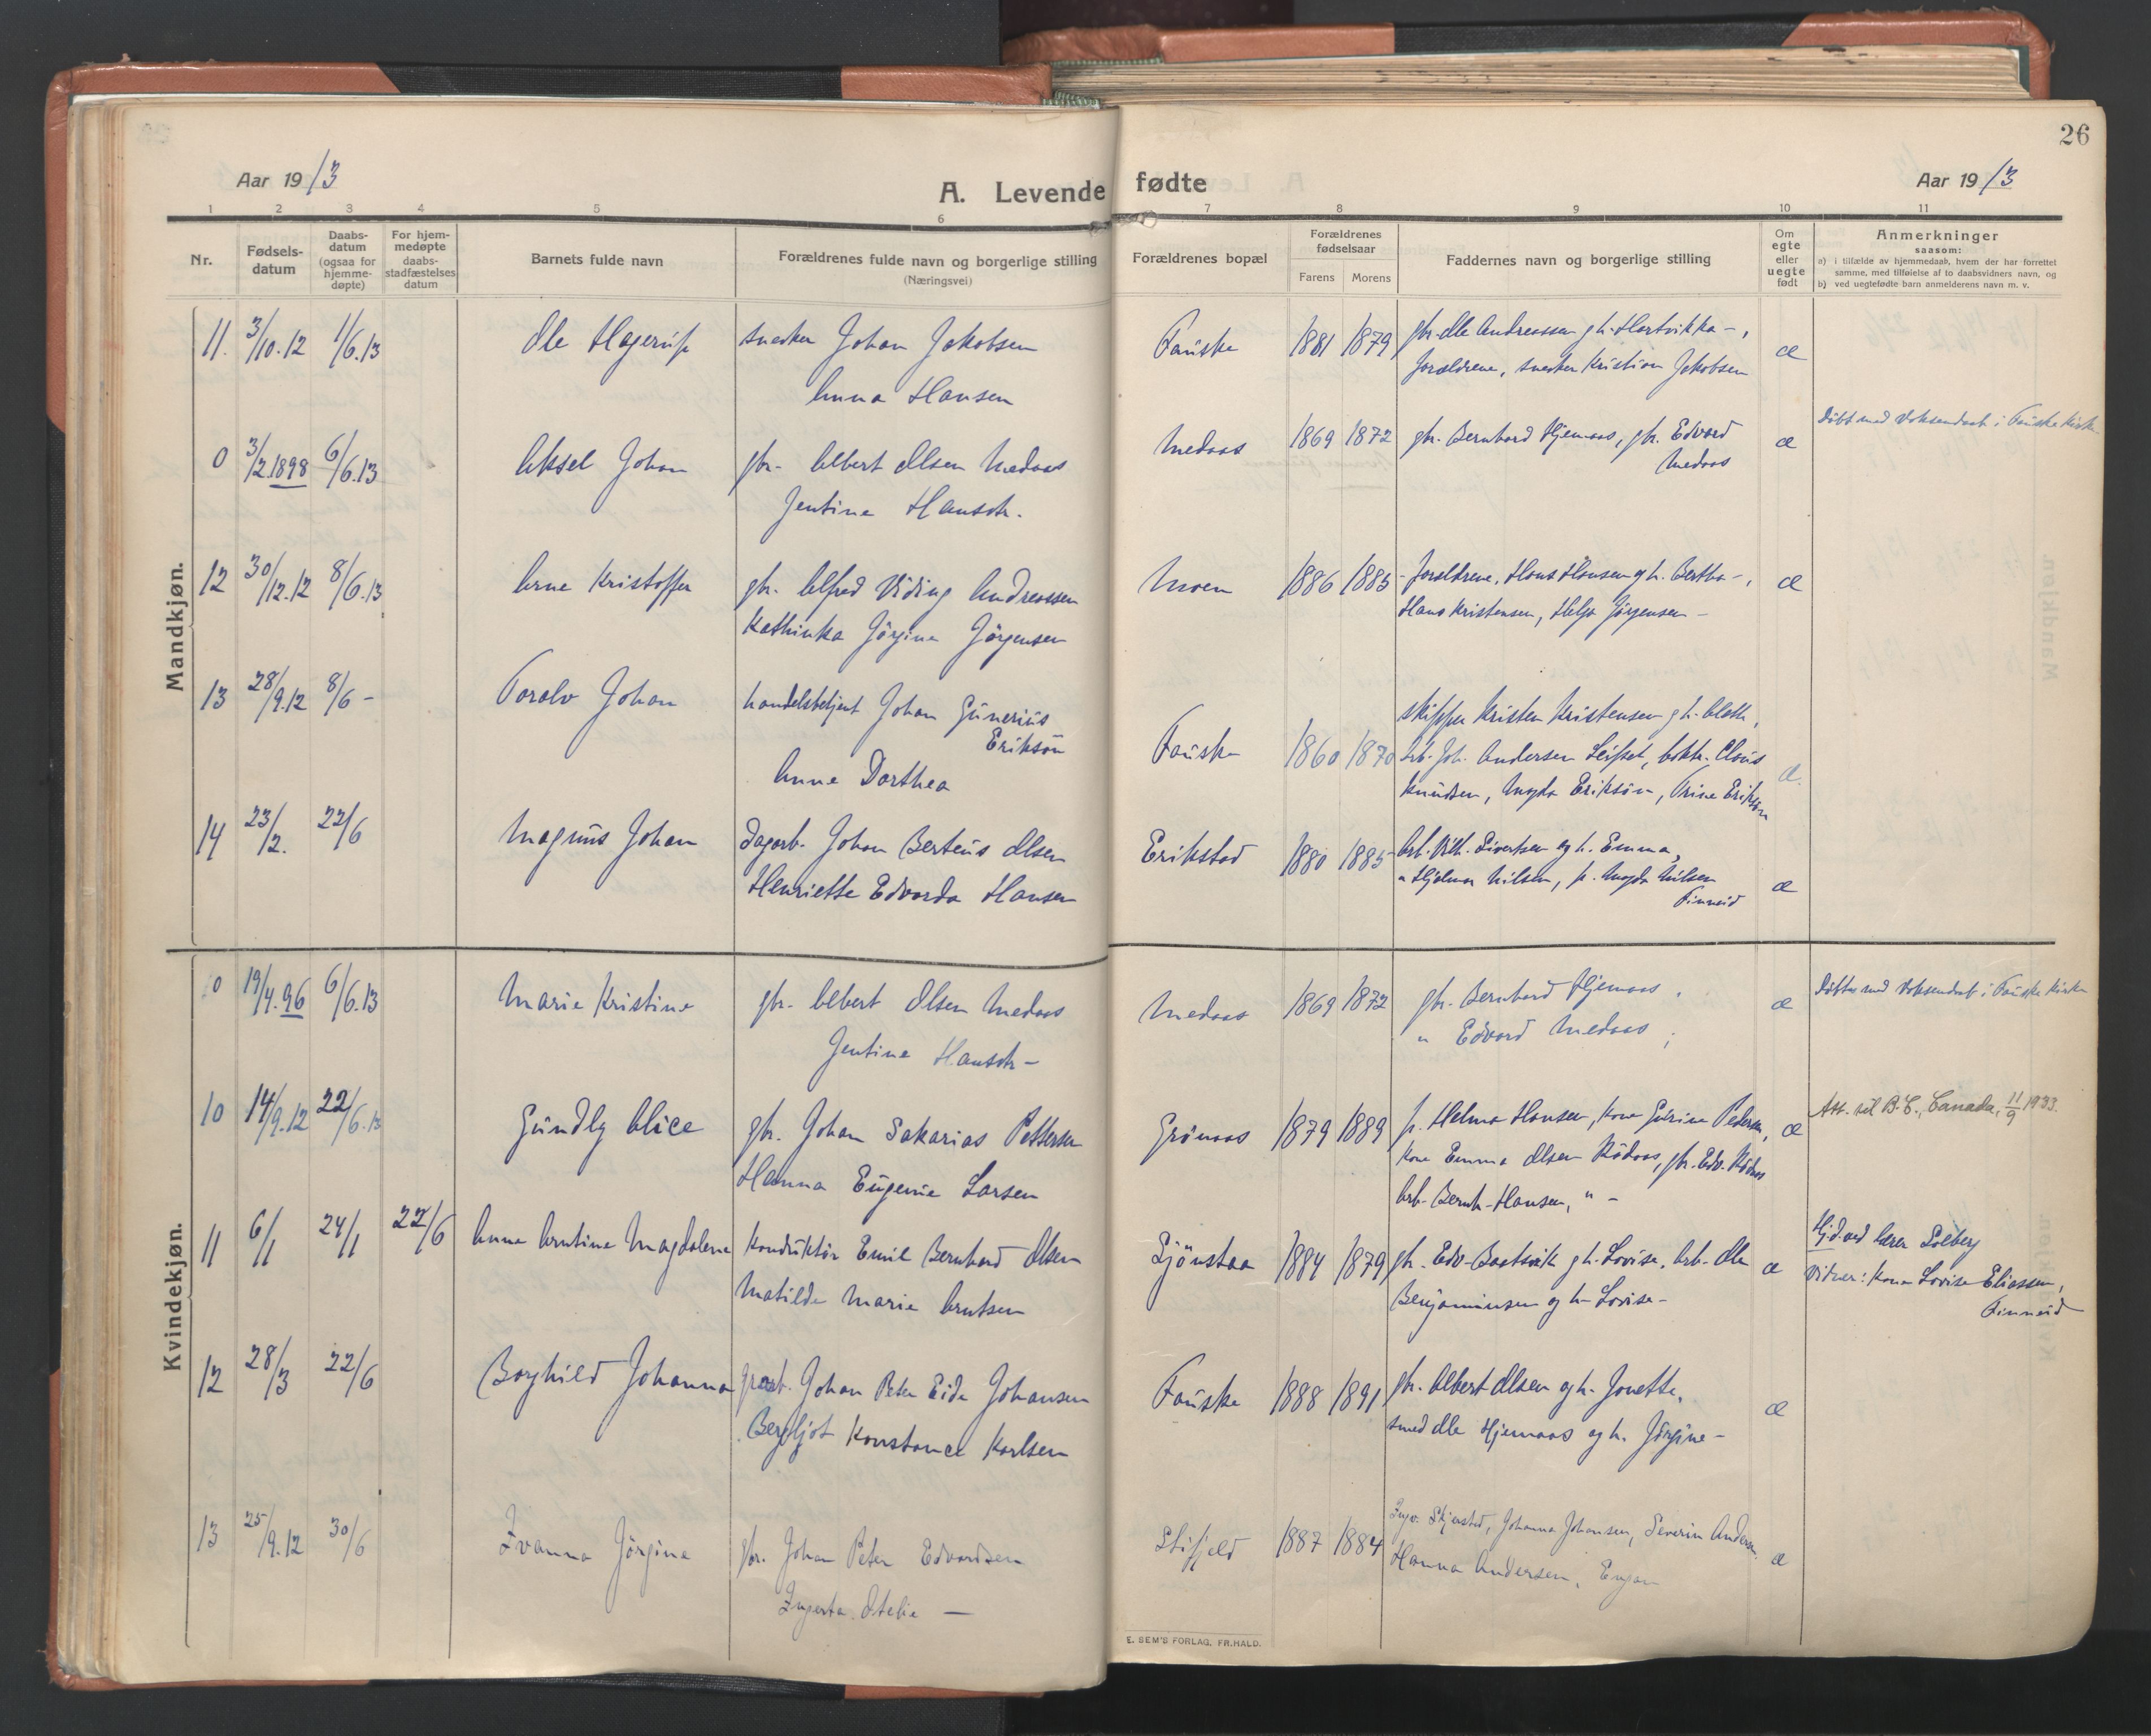 26
Aar 1913
A. Levende fødte
Aar 1913
1 2 3 4 5 6 7 8 9 10 11
Nr.
Fødsels-
datum
Daabs-
datum
(ogsaa for
hjemme-
døpte)
For hjem-
medøpte
daabs-
stadfæstelses
datum
Barnets fulde navn
Forældrenes fulde navn og borgerlige stilling
(Næringsvei)
Forældrenes bopæl
Forældrenes
fødselsaar
Farens Morens
Faddernes navn og borgerlige stilling
Om
egte
eller
uegte
født
Anmerkninger
saasom:
a) i tilfælde av hjemmedaab, hvem der har forrettet
samme, med tilføielse af to daabsvidners navn, og
b) ved uegtefødte barn anmelderens navn m. v.
Mandkjøn.
11. 3/10.12 1/6.13 Ole Hagerup snedker Johan Jakobsen Fauske 1881 1879 gbr. Ole Andreassen og h. Hartvikka -, æ
Anna Hansen forældrene, snedker Kristian Jakobsen
0 3/2.1898 6/6.13 Aksel Johan gbr. Albert Olsen Medaas Medaas 1869 1872 gbr. Bernhard Hjemaas, gbr. Edvard æ Døbt med voksendaab i Fauske kirke
Jentine Hansdtr. Medaas
12 30/12.12 8/6.13 Arne Kristoffer gbr. Alfred Viding Andreassen Moen 1886 1885 Forældrene, Hans Hansen og h. Bertha -, æ
Kathinka Jørgine Jørgensen Hans Kristensen, Helga Jørgensen -
13 28/9.12 8/6 - Toralv Johan handelsbetjent Johan Gunerius Fauske 1860 1870 skipper Kristen Kristensen og h.
Eriksøn arb. Joh. Andersen Leifset, Claus æ.
Anne Dorthea Knudsen, Magda Eriksøn, Trine Eriksøn
14 23/2. 22/6 Magnus Johan dagarb. Johan Berteus Olsen Erikstad 1880 1885 arb. Vilh. Sivertsen og h. Emma,
Henriette Edvarda Hansen " Hjalmar Nilsen, p. Magda Nilsen æ
Finneid
Kvindekjøn.
0 19/4.96 6/6.13 Marie Kristine gbr. Albert Olsen Medaas Medaas 1869 1872 gbr. Bernhard Hjemaas, æ Døbt med voksendaab i Fauske kirke
Jentine Hansdtr - " Edvard Medaas,
10 14/9.12 22/6.13 Gundly Alice gbr. Johan Sakarias Pettersen Grønaas 1879 1889 p. Helma Hansen, kone Gurine Pedersen, æ Att. til B.C., Canada, 11/9 1933.
Hanna Eugenie Larsen kone Emma Olsen Rødaas, gbr. Edv. Rødaas
arb. Bernh. Hansen, " -
11 6/1 24/1 22/6 Anna Arntine Magdalene konduktør Emil Bernhard Olsen Sjønstaa 1884 1879 gbr. Edv. Baatsvik og h. Lovise, arb. Ole æ Hj.d. ved lærer Solberg
Matilde Marie Arntsen Benjaminsen og h. Lovise - Vidner: kone Lovise Eliassen,
Finneid
12 28/3 22/6 Borghild Johanna Johan Peter Eide Johansen Fauske 1888 1891 gbr. Albert Olsen og h. Jonette, æ
Bergljot Konstance Karlsen smed Ole Hjemaas og h. Jørgine -
13 25/9.12 30/6 Ivanna Jørgine gbr. Johan Peter Edvardsen Stifjeld 1887 1884 Ingv. Skjerstad, Johanna Johansen, Severin Andersen. æ
Otelie - Hanna Andersen, Engan
E. SEM'S FORLAG, FR.HALD.